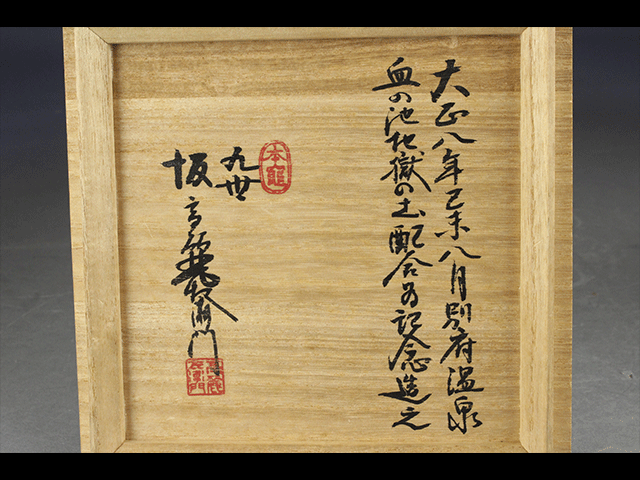 大正八年己未八月別府温泉
血の池地獄の土配合為記念造之
本竈
九世
坂高麗左衛門
高麗左衛門